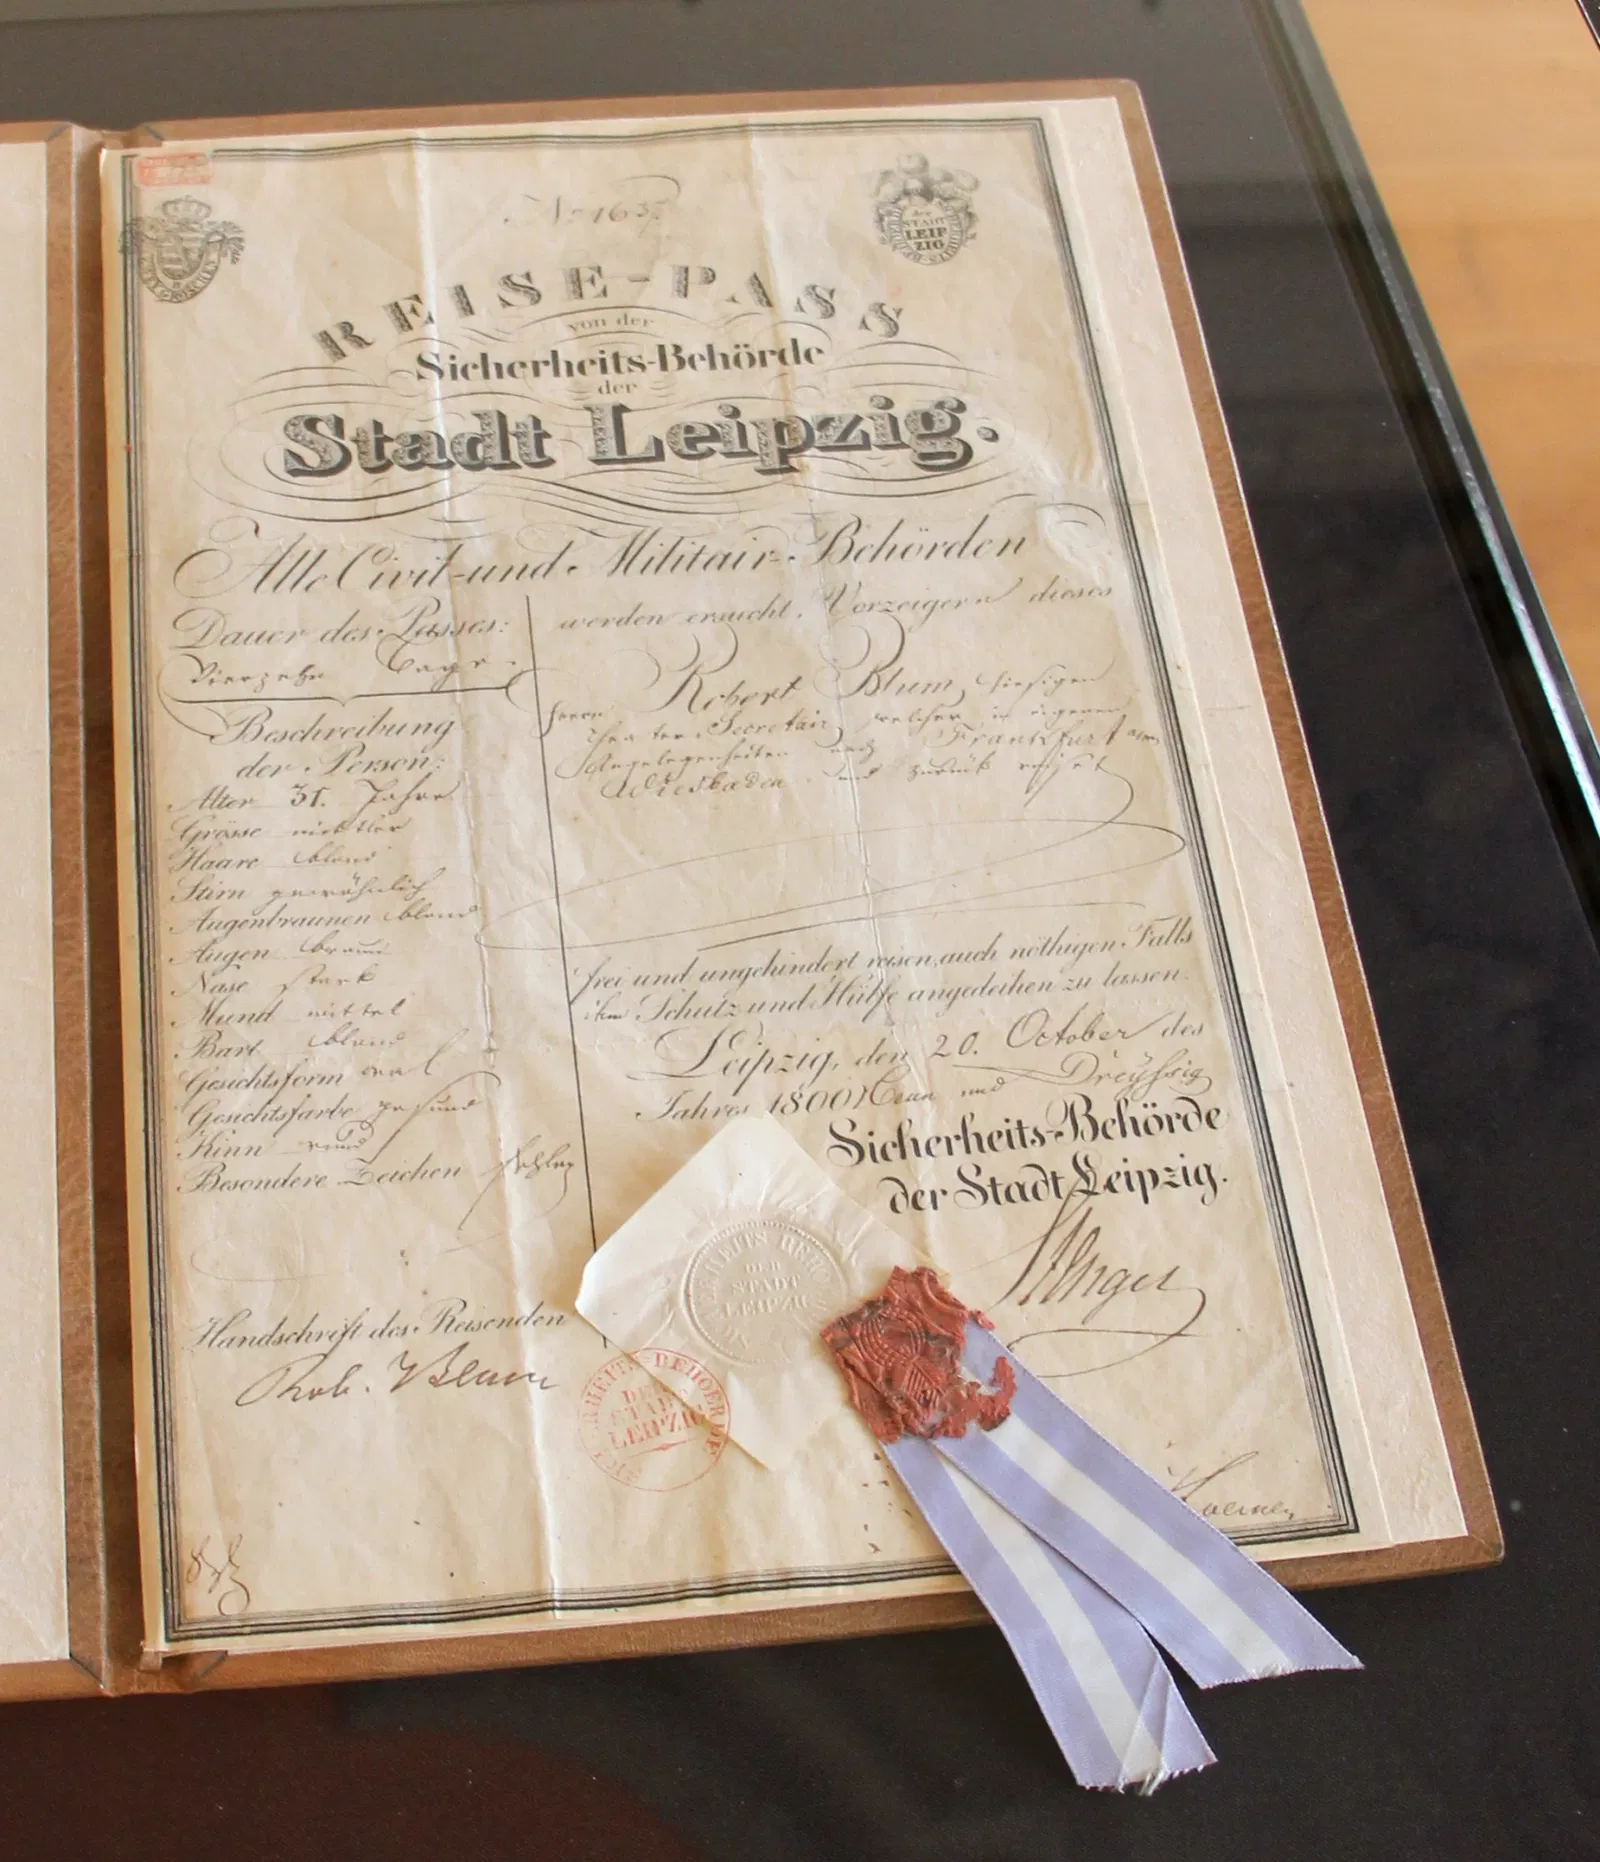 No 1637
der
STADT
LEIP
ZIG
REISE-PASS
von der
Sicherheits-Behörde
der
Stadt Leipzig.
Alle Civil- und Militair-Behörden
werden ersucht, Vorzeigern dieses
Herrn Robert Blum, hiesigen
Theater Secretair, welcher in eigenen
Angelegenheiten nach Frankfurt am
Wiesbaden und zurück reiset
frei und ungehindert reisen, auch nöthigen Falls
ihm Schutz und Hülfe angedeihen zu lassen.
Leipzig, den 20. October des
Jahres 1800 Neun und Dreyßig
Sicherheits-Behörde
der Stadt Leipzig.
Dauer des Passes:
Vierzehn Tage.
Beschreibung
der Person:
Alter 31. Jahre
Grösse mittler
Haare blond
Stirn gewöhnlich
Augenbraunen blond
Augen braun
Nase stark
Mund mittel
Bart blond
Gesichtsform oval
Gesichtsfarbe gesund
Kinn rund
Besondere Zeichen fehlen
Handschrift des Reisenden
Rob. Blum
SICHERHEITS BEHÖRDE
DER
STADT
LEIPZIG
SICHERHEITS-BEHOERDE
DER
STADT
LEIPZIG